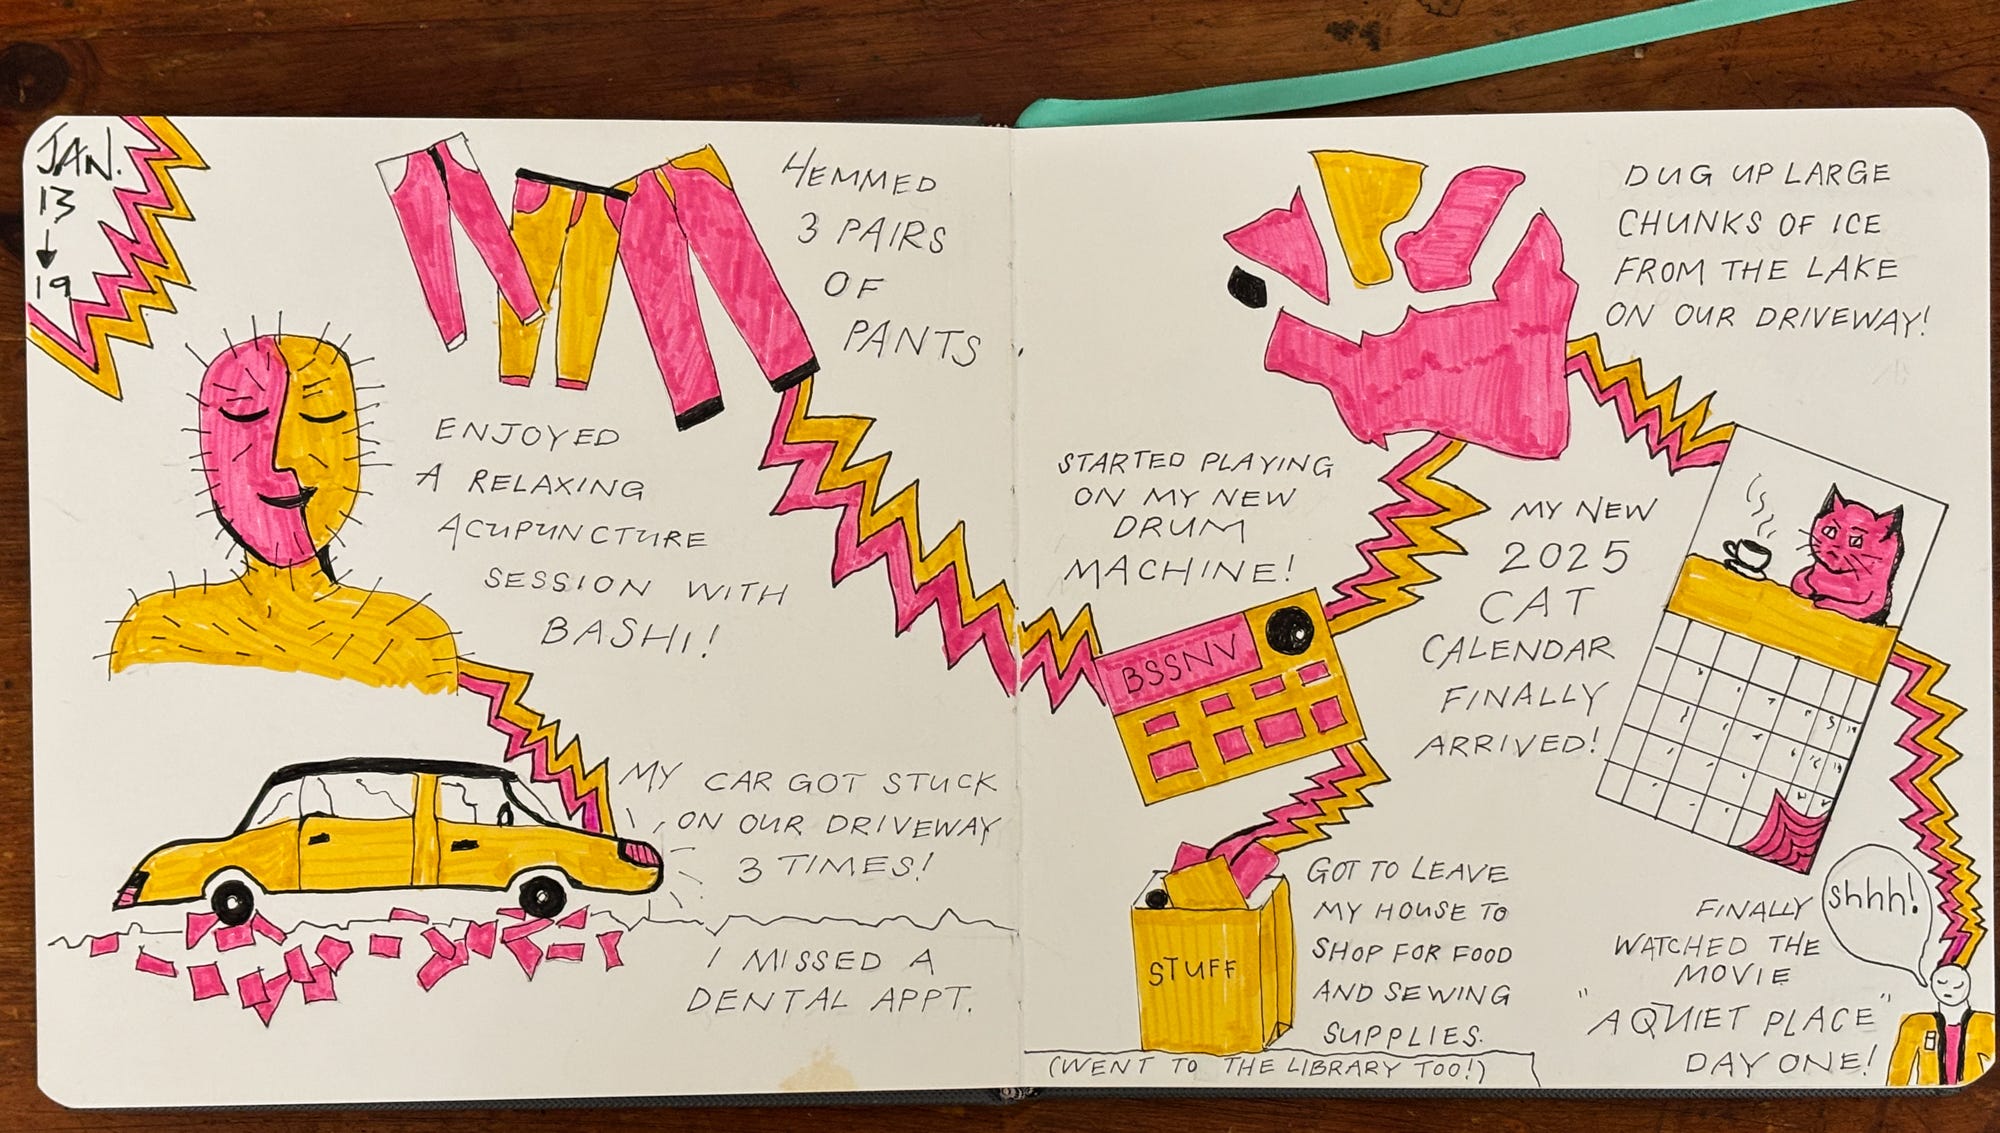 JAN.
13
↓
19
HEMMED
3 PAIRS
OF
PANTS
ENJOYED
A RELAXING
ACUPUNCTURE
SESSION WITH
BASHI!
MY CAR GOT STUCK
ON OUR DRIVEWAY
3 TIMES!
I MISSED A
DENTAL APPT.
DUG UP LARGE
CHUNKS OF ICE
FROM THE LAKE
ON OUR DRIVEWAY!
STARTED PLAYING
ON MY NEW
DRUM
MACHINE!
BSSNV
MY NEW
2025
CAT
CALENDAR
FINALLY
ARRIVED!
STUFF
GOT TO LEAVE
MY HOUSE TO
SHOP FOR FOOD
AND SEWING
SUPPLIES.
(WENT TO THE LIBRARY TOO!)
shhh!
FINALLY
WATCHED THE
MOVIE
"A QUIET PLACE"
DAY ONE!